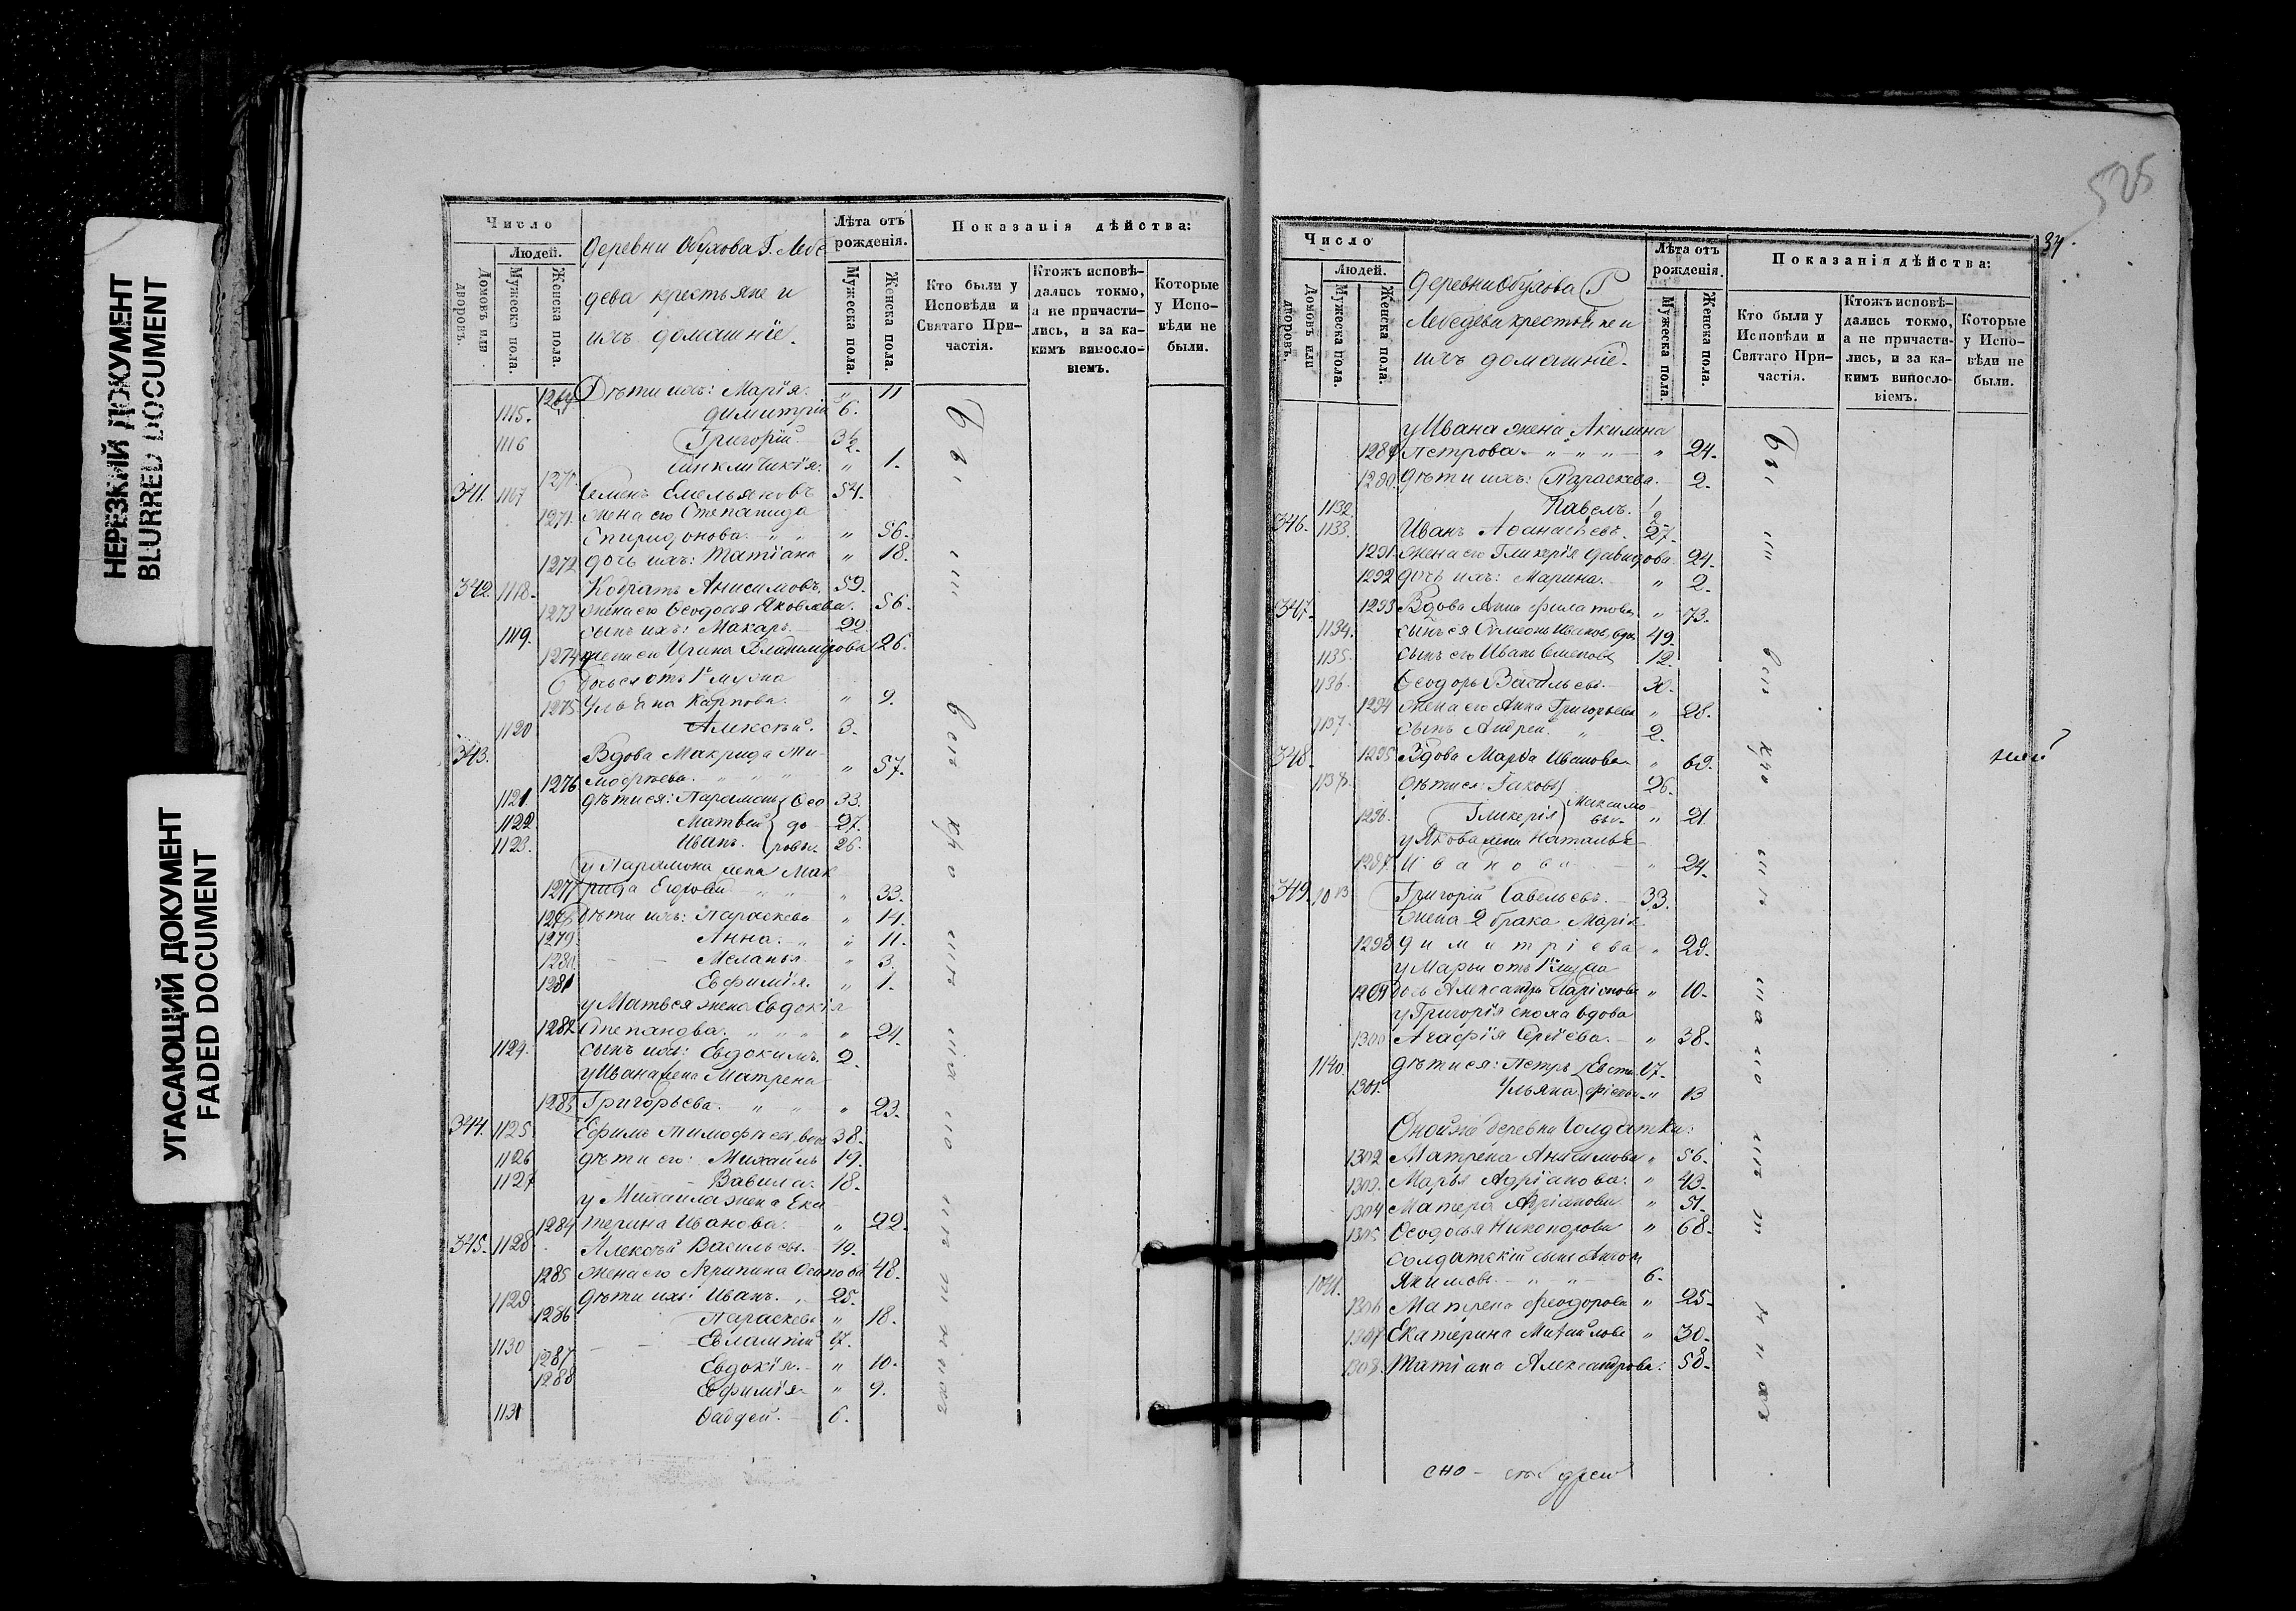 НЕРЕЗКИЙ ДОКУМЕНТ
BLURRED DOCUMENT
УГАСАЮЩИЙ ДОКУМЕНТ
FADED DOCUMENT
Число
Людей.
Домовъ или дворовъ.
Мужеска пола.
Женска пола.
Деревни Обухова Г. Лебе
дева крестьяне и
ихъ домашніе.
Лѣта отъ рожденія.
Мужеска пола.
Женска пола.
Показанія дѣйства:
Кто были у Исповѣди и Святаго При-частія.
Ктожъ исповѣ-дались токмо, а не причасти-лись, и за ка-кимъ винословіемъ.
Которые у Испо-вѣди не были.
Дѣти ихъ: Марія. " 11
1115. Димитрій 6.
1116 Григорій 3½
1270. " 1.
341. 1117 Семенъ Емельяновъ 54.
1271. жена его Степанида
Спиридонова. " " " 56.
1272 дочь ихъ: Татіана " 18.
342. 1118. Кодратъ Анисимовъ. 59.
1273 жена его Ѳеодосья Яковлева. 56.
1119. сынъ ихъ: Макаръ. 22.
1274 жена его Ирина Владимірова 26.
дочь ея отъ 1го мужа
1275 Ульяна Карпова. " 9.
1120 Алексѣй. 3.
343. Вдова Макрида Ти-
1276 моѳеева. " " " " 57.
1121. дѣти ея: Парамонъ Ѳео 33.
1122. Матвей до 27.
1123. Иванъ. ровы. 26.
у Парамона жена Мак
1277 рида Егорова " " " 33.
1278 Дѣти ихъ: Параскева " 14.
1279. Анна. " " 11.
1280. Меланья " 3.
1281 Евфимія. " 1.
у Матвея жена Евдокія
1282. Степанова. " " " " 24.
1124. сынъ ихъ: Евдокимъ. 2.
у Ивана жена Матрена
1283 Григорьева. " " " 23.
344. 1125. Ефимъ Тимофѣевъ, вдов 38.
1126 дѣти его: Михаилъ 19.
1127 Вавила. 18.
у Михаила жена Ека
1284 терина Иванова. " 22.
345. 1128. Алексѣй Васильевъ. 49.
1285 жена его Агрипина Осипова 48.
1129 дѣти ихъ: Иванъ. " 25.
1286 Параскева " 18.
1130 Евлампій 17.
1287 Евдокія. " 10.
1288 Евфимія " 9.
1131 Фаддей. 6.
525
34.
Число
Людей.
Домовъ или дворовъ.
Мужеска пола.
Женска пола.
Деревни Обухова Г
Лебедева крестьяне и
ихъ домашніе.
Лѣта отъ рожденія.
Мужеска пола.
Женска пола.
Показанія дѣйства:
Кто были у Исповѣди и Святаго При-частія.
Ктожъ исповѣ-дались токмо, а не причасти-лись, и за ка-кимъ винословіемъ.
Которые у Испо-вѣди не были.
у Ивана жена Акилина
1289 Петрова. " " " " 24.
1290. Дѣти ихъ: Параскева. 2.
1132. Павелъ. ½
346. 1133. Иванъ Аѳанасьевъ. 27.
1291. жена его Гликерія Давидова 24.
1292 дочь ихъ: Марина. " 2.
347. 1293 Вдова Анна Филатова " 73.
1134. сынъ ея Симеонъ Иванов, вдов 49.
1135. сынъ его Иванъ Семеновъ 12.
1136. Ѳеодоръ Васильевъ. 30.
1294 жена его Анна Григорьева " 28.
1137. сынъ Андрей. " 2.
348. 1295 Вдова Марѳа Иванова. " 69.
1138. Дѣти ея: Іаковъ 26.
1296. Гликерія Максимо вы. " 21.
у Якова жена Наталья
1297 Иванова " 24.
349. Григорій Савельевъ. 33.
жена 2 брака Марія
1298 Димитріева " 29.
у Марьи отъ 1го мужа
дочь Александра Ларіонова " 10.
у Григорія сноха вдова
1300 Агафія Сергіева. " 38.
1140. дѣти ея: Петръ Евста 17.
1301. Ульяна фіевы. " 13
Оной же деревни Солдатки:
1302 Матрена Анисимова " 56.
1303. Марья Адріанова. " 43.
1304 Адріанова. " 51.
1305 Ѳеодосья Никандрова " 68.
Солдатскій сынъ Антонъ
1041. Якимовъ. " " 6.
1306 Матрена Феодорова " 25.
1307 Екатерина Михайлова " 30.
1308. Татіана Александрова: 58.